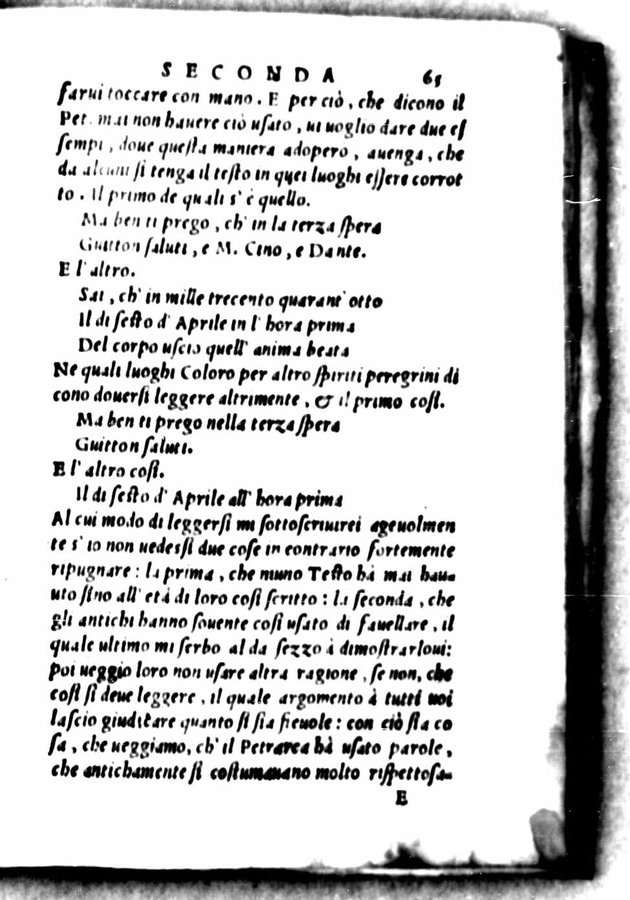 SECONDA 65
farui toccare con mano. E per ciò, che dicono il
Pet. mai non hauere ciò usato, ui uoglio dare due es
sempi, doue questa maniera adoperò, auenga, che
da alcuni si tenga il testo in quei luoghi essere corrot
to. Il primo de quali s' è quello.
Ma ben ti prego, ch' in la terza spera
Guitton saluti, e M. Cino, e Dante.
E l' altro.
Sai, ch' in mille trecento quarant' otto
Il di sesto d' Aprile in l' hora prima
Del corpo uscio quell' anima beata
Ne quali luoghi Coloro per altro spiriti peregrini di
cono douersi leggere altrimente, & il primo cosi.
Ma ben ti prego nella terza spera
Guitton saluti.
E l' altro cosi.
Il di sesto d' Aprile all' hora prima
Al cui modo di leggersi mi sottoscriuirei ageuolmen
te s' io non uedessi due cose in contrario fortemente
ripugnare: la prima, che niuno Testo hà mai hau-
uto sino all' età di loro cosi scritto: la seconda, che
gli antichi hanno souente cosi usato di fauellare, il
quale ultimo mi serbo al da sezzo à dimostrarloui:
poi ueggio loro non usare altra ragione, se non, che
cosi si deue leggere, il quale argomento à tutti uoi
lascio giudicare quanto si sia fieuole: con ciò sia co
sa, che ueggiamo, ch' il Petrarca hà usato parole,
che antichamente si costumauano molto rispettosa-
E